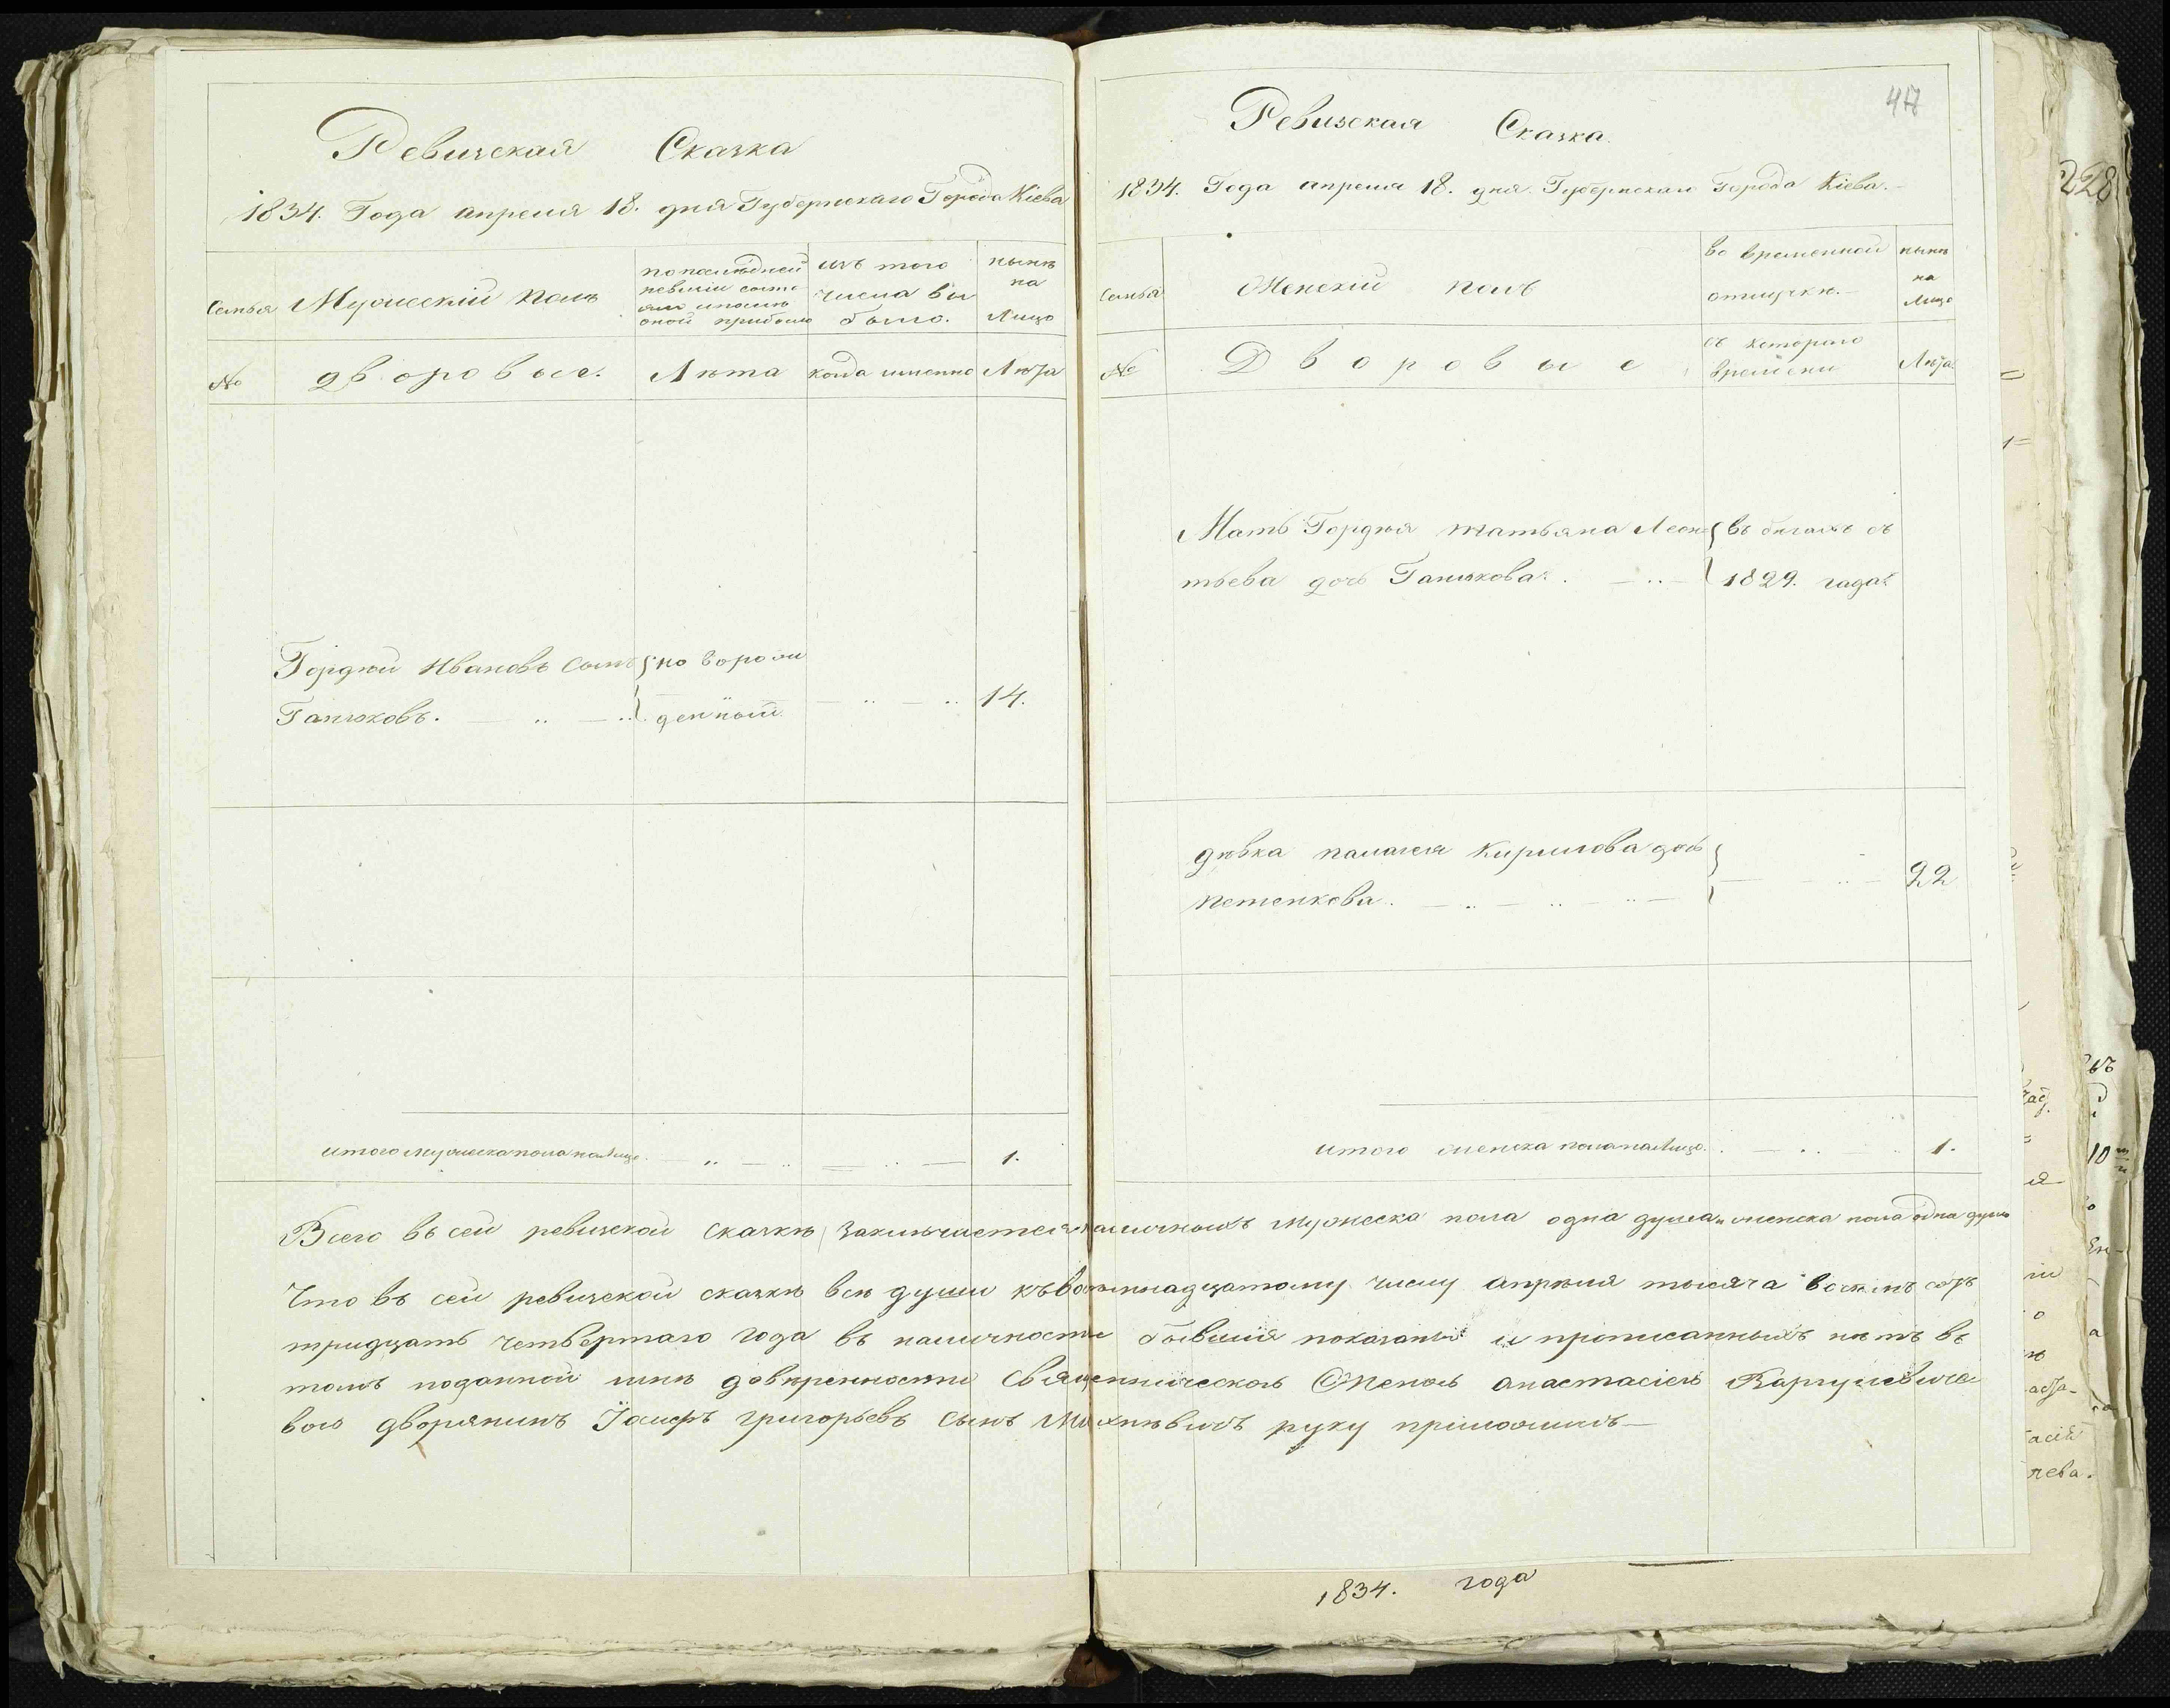 Ревизская Сказка
1834. Года апреля 18. дня Губернскаго Города Кіева
Семья
Мужескій полъ
по последней
ревизіи состо
яли и после
оной прибыло
изъ того
числа вы
было.
нынѣ
на
Лицо
№
дворовые.
Лѣта
когда имянно
Лѣта
Гордѣй Ивановъ сынъ
Ганжховъ.
но ворож
денный
14.
итого мужеска пола на лицо.
1.
417
Ревизская Сказка.
1834. Года апреля 18. дня Губернскаго Города Кіева.
Семья
Женскій полъ
во временной
отлучкѣ.
нынѣ
на
Лицо
№
Дворовые
съ котораго
времени
Лѣта
Мать Гордѣя татьяна Леон
тьева дочь
въ бегахъ съ
1829. года
дѣвка палагея Кирилова дочь
петенкова
22
итого женска пола на лицо.
1.
Всего въ сей ревизской сказкѣ заключается наличныхъ мужеска пола одна душа и женска пола одна душа
Что въ сей ревизской сказкѣ всѣ души къ восемнадцатому числу апрѣля тысяча восемъ сотъ
тридцать четвертаго года въ наличности бывшія показаны и прописанныхъ нѣтъ въ
томъ поданной мнѣ довѣренности Священническою Женою анастасіею
вою дворянинъ Іосифъ григорьевъ сынъ руку приложилъ
1834. года
228